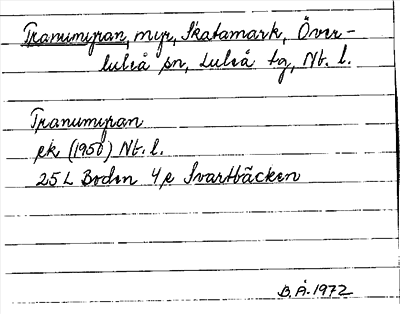 Tranumyran, myr, Skatamark, Över-
luleå sn, Luleå tg, Nb. l.
Tranumyran
ek (1956) Nb. l.
25 L Boden 4 e Svartbäcken
B. Å. 1972